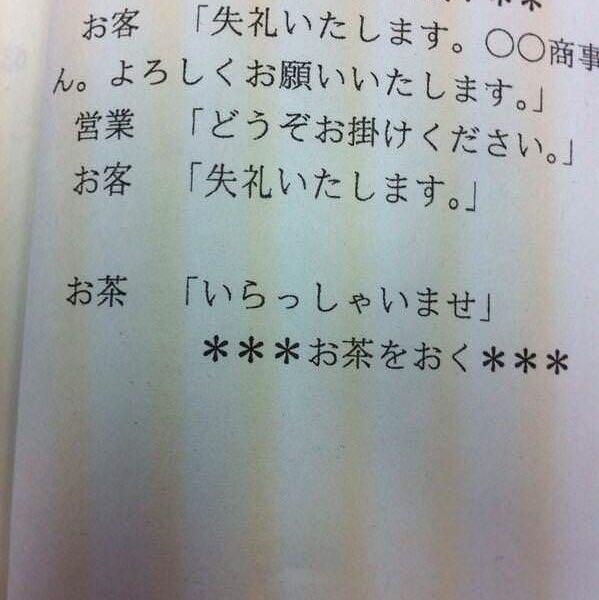 ＊＊
お客　「失礼いたします。〇〇商事
ん。よろしくお願いいたします。」
営業　「どうぞお掛けください。」
お客　「失礼いたします。」
お茶　「いらっしゃいませ」
＊＊＊お茶をおく＊＊＊